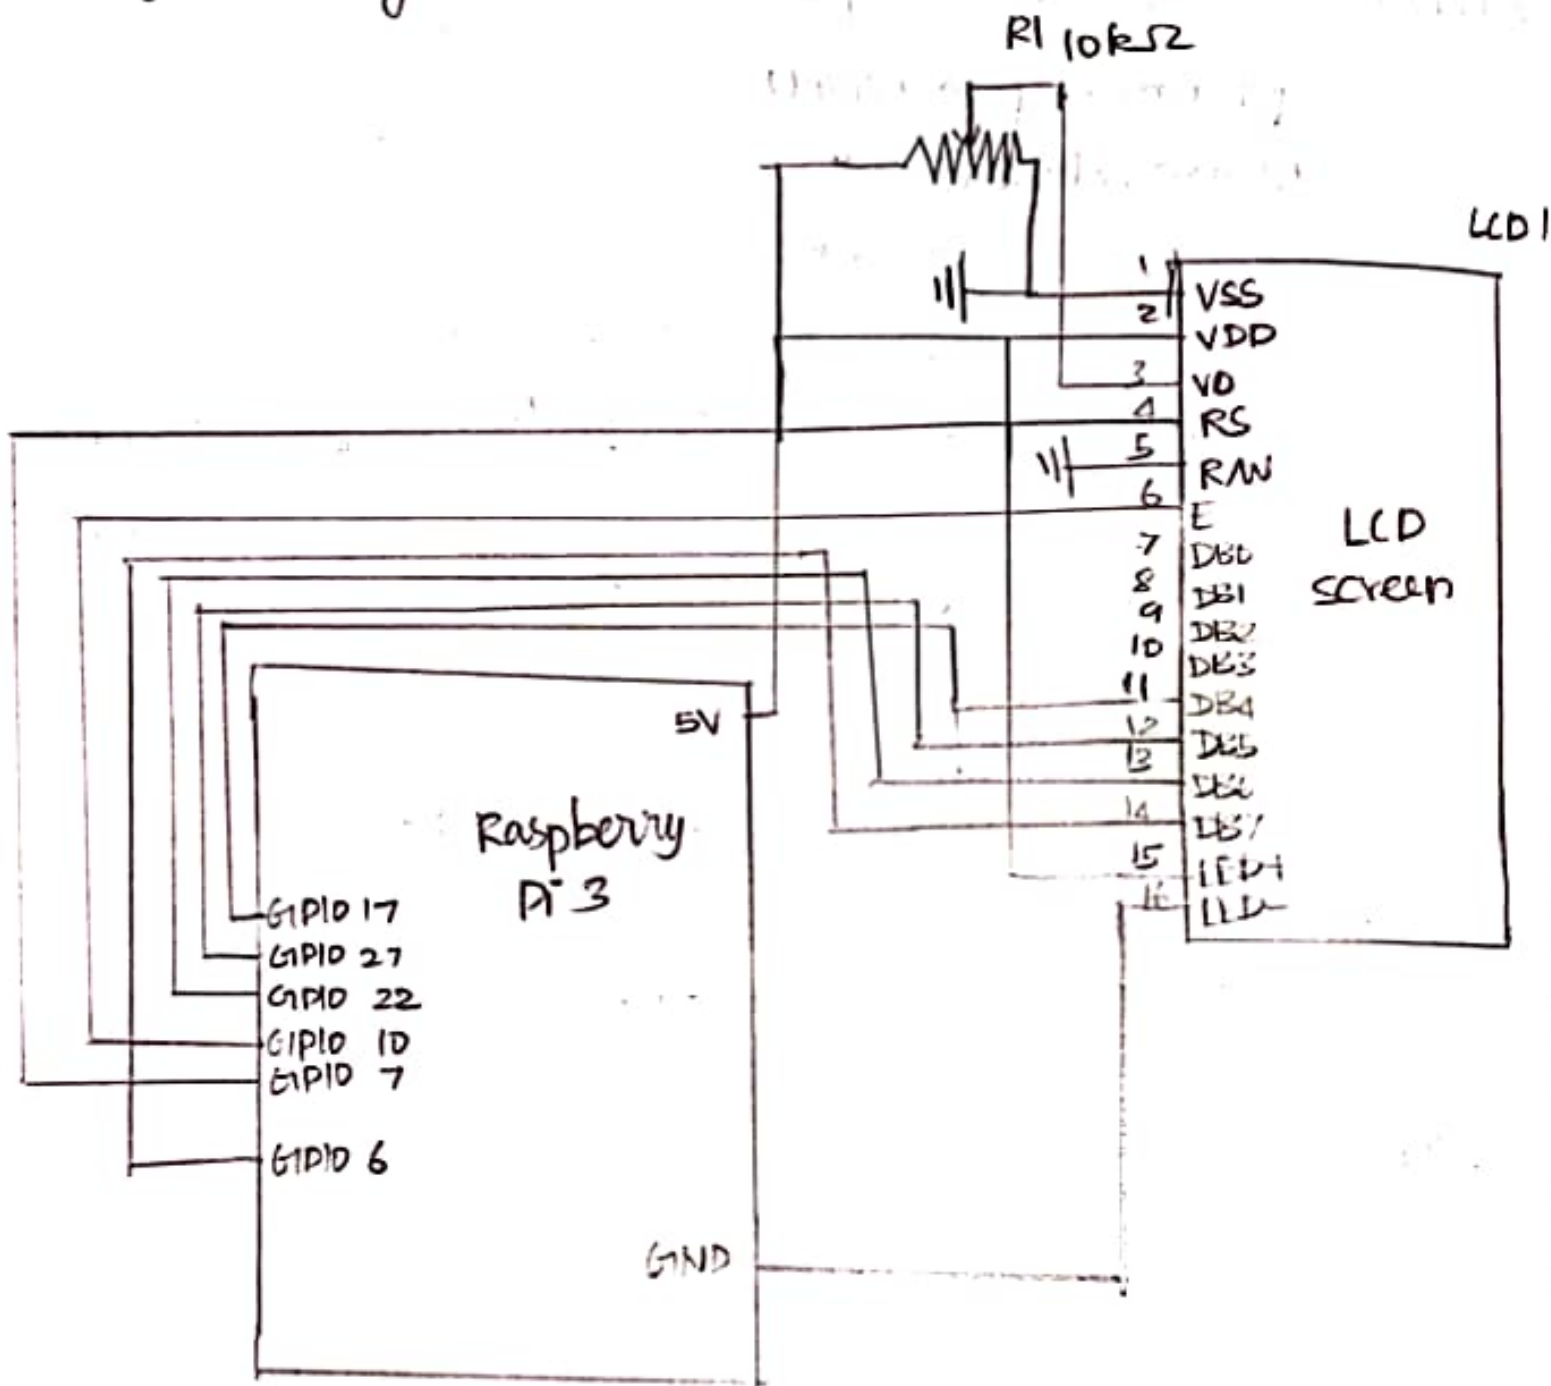 R1 10kΩ
LCD 1
1
VSS
2
VDD
3
VO
4
RS
5
R/W
6
E
7
DB0
8
DB1
9
DB2
10
DB3
11
DB4
12
DB5
13
DB6
14
DB7
15
LED+
16
LED-
LCD
screen
5V
Raspberry
Pi 3
GPIO 17
GPIO 27
GPIO 22
GPIO 10
GPIO 7
GPIO 6
GND